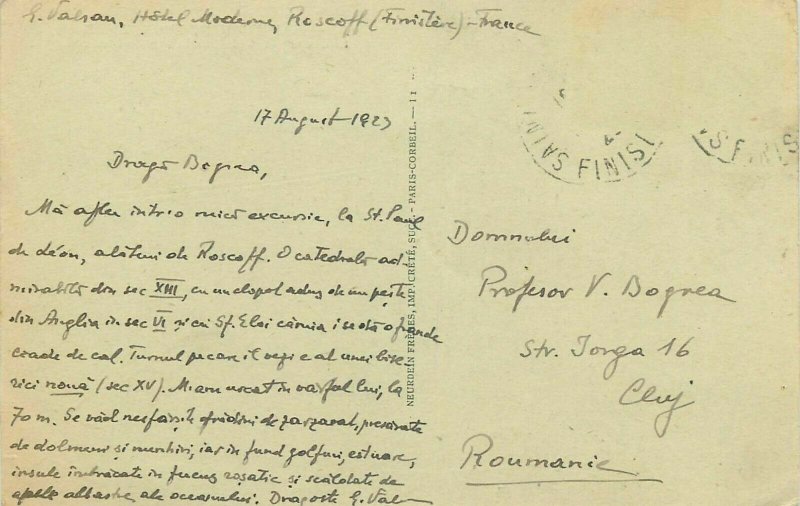 G. Valsan, Hôtel Moderne, Roscoff (Finistère) - France
17 August 1923
Dragă Bogrea,
Mă aflu într'o mică excursie, la St. Paul
de Léon, alături de Roscoff. O catedrală ad-
mirabilă din sec XIII, cu un clopot adus de un pește
din Anglia în sec VI și cu Sf. Eloi căruia i se dă ofrande
coade de cal. Turnul pe care îl vezi e al unei bise-
rici nouă (sec XV). M'am urcat în vârful lui, la
70 m. Se văd nesfârșite grădini de zarzavat, presărate
de dolmeni și menhiri, iar în fund golfuri, estuare,
insule îmbrăcate în fucus roșatic și scăldate de
apele albastre ale oceanului. Dragoste G. Valsan
NEURDEIN FRÈRES, IMP. CRÉTÉ, SUCC. - PARIS-CORBEIL. — 11
SAINT
FINIST
S FINIS
Domnului
Profesor V. Bogrea
Str. Iorga 16
Cluj
Roumanie